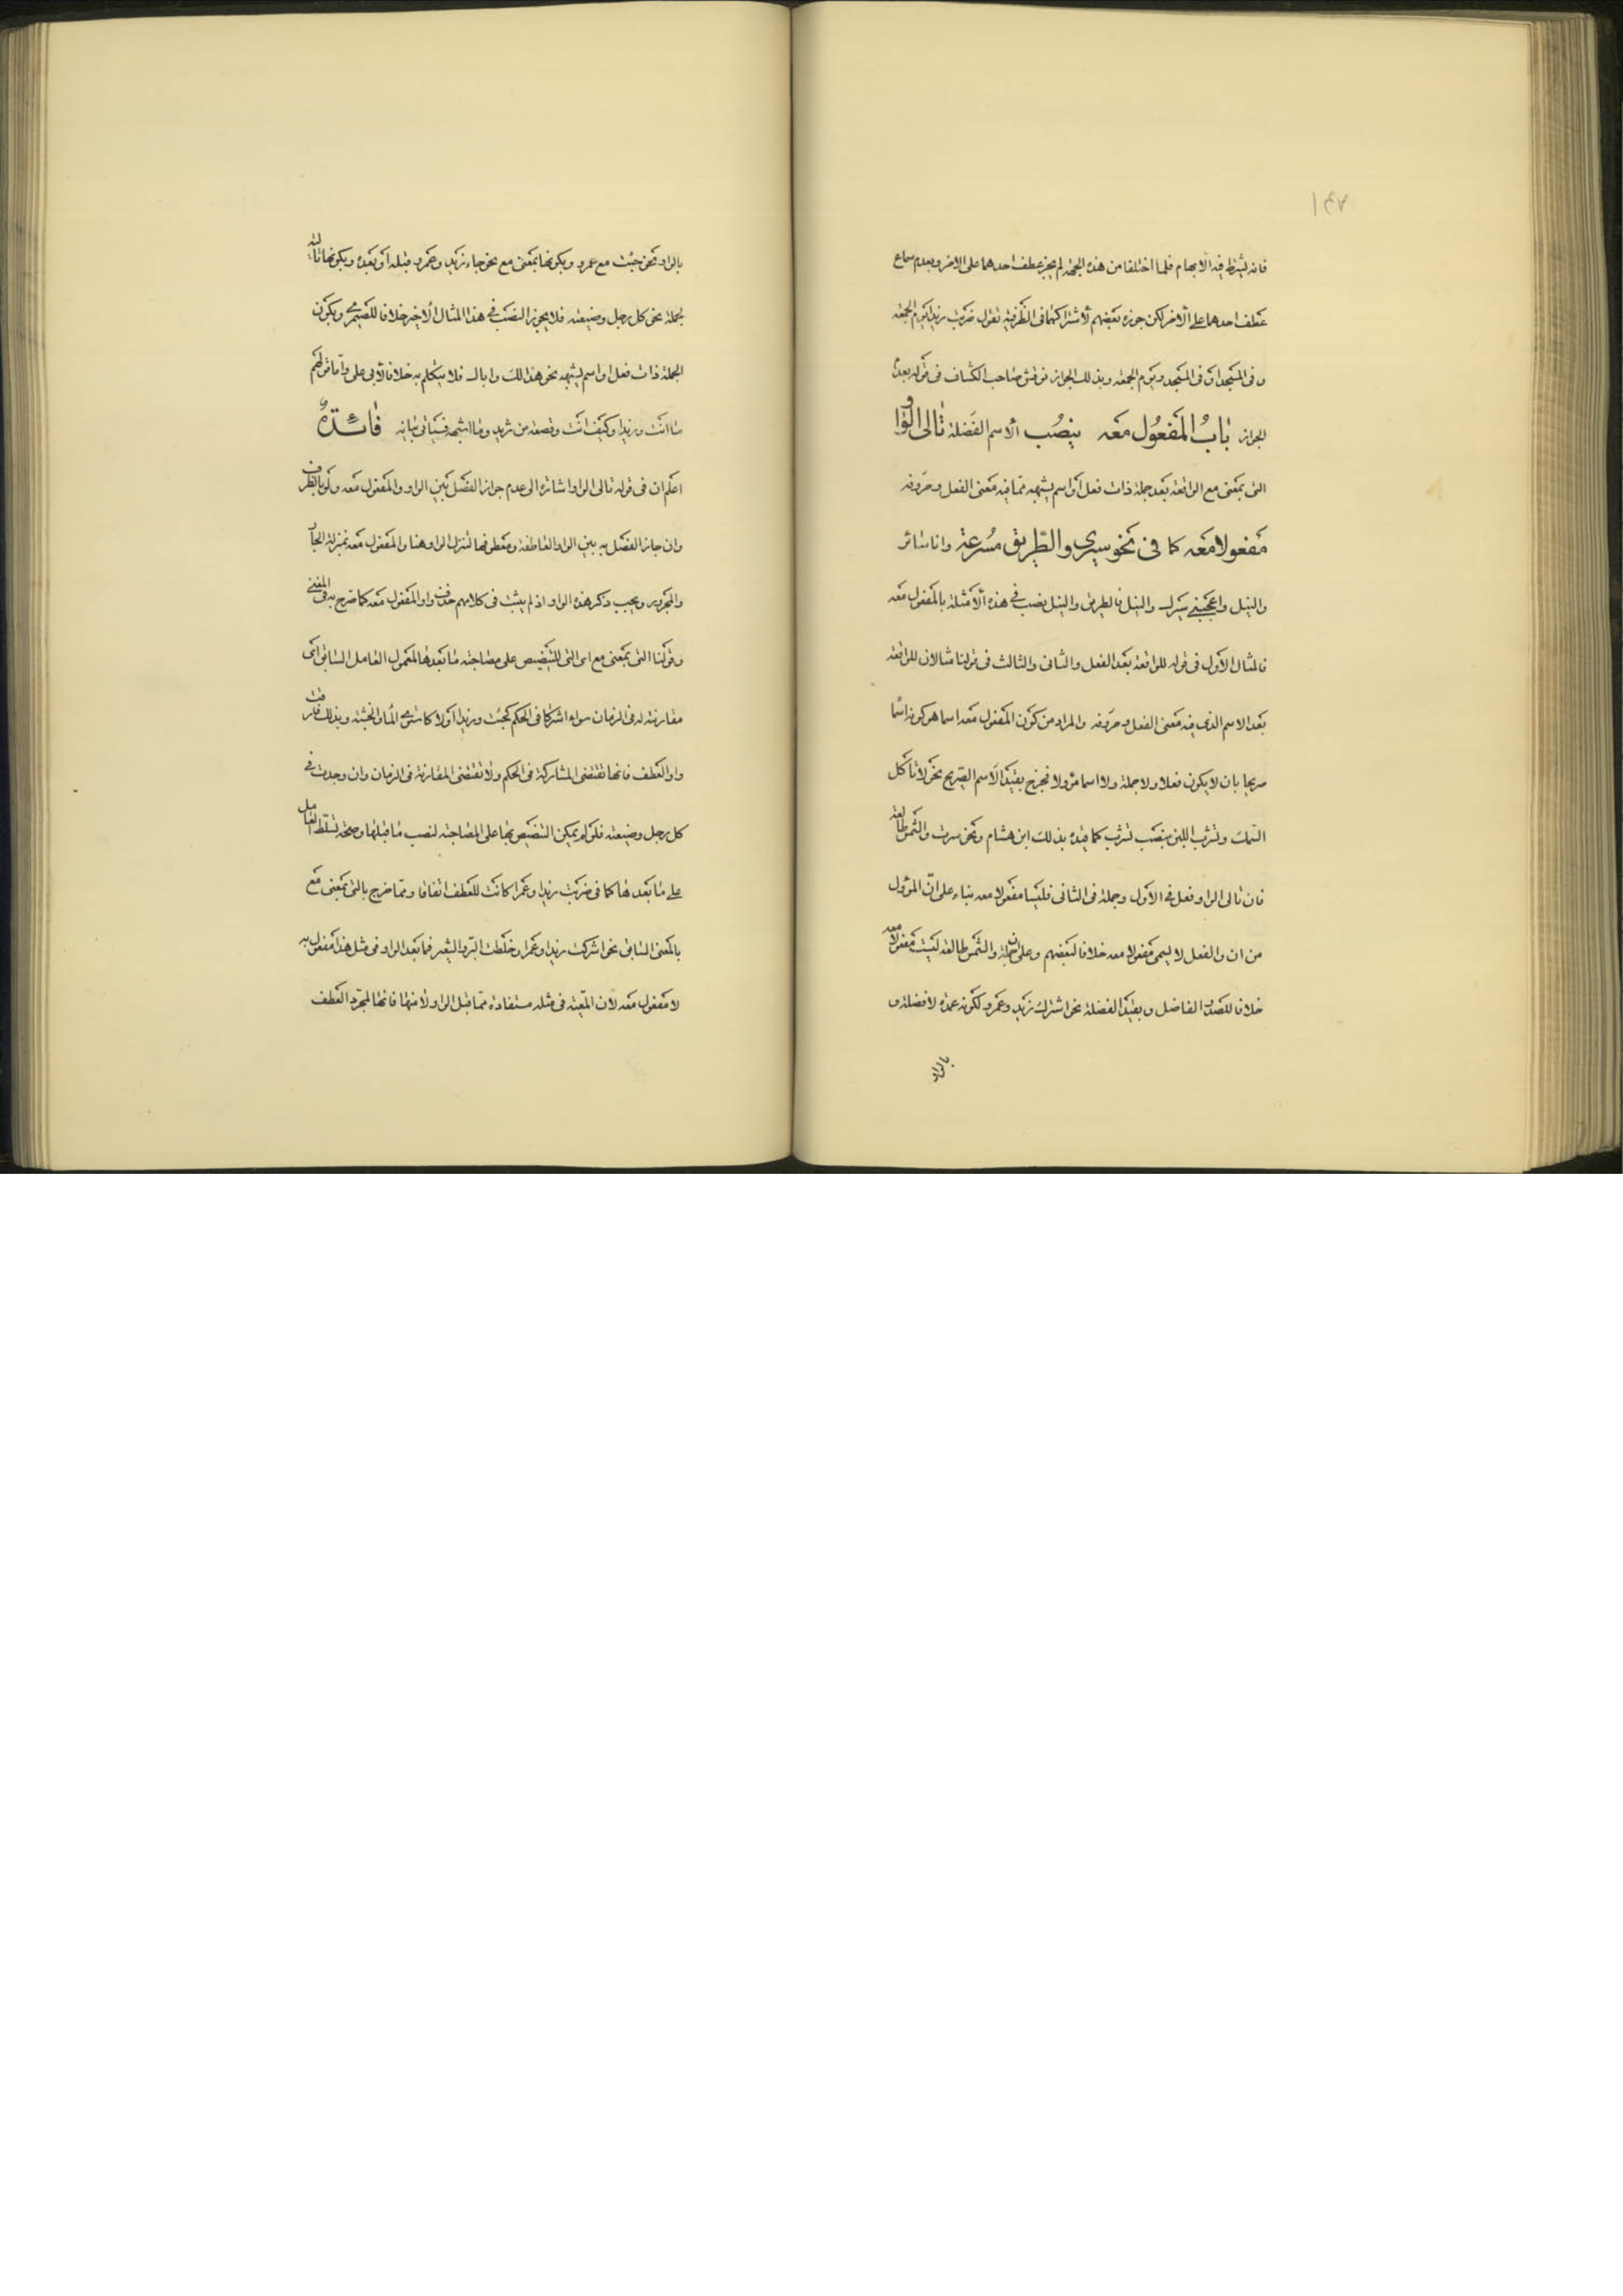 ١٤٧
فانه يشترط فيه الابهام فلما اختلفا من هذه الجهة لم يجز عطف احدهما على الاخر وبعدم سماع
عطف احدهما على الاخر لكن جوزه بعضهم لاشتراكهما فى الظرفية تقول ضربت زيدا يوم الجمعة
وفى المسجد او فى المسجد ويوم الجمعة وبذلك الجواز صاحب الكشاف فى قوله بعدم
الجواز باب المفعول معه ينصب الاسم الفضلة تالى الواو
التى بمعنى مع الواقعة بعد جملة ذات فعل او اسم يشبهه مما فيه معنى الفعل وحروفه
مفعولا معه كما فى نحو سيرى والطريق مسرعة وانا سائر
والنيل واعجبنى سيرك والنيل فالطريق والنيل نصب فى هذه الامثلة بالمفعول معه
فالمثال الاول فى قوله للواقعة بعد الفعل والثانى والثالث فى قولنا مثالان للواقعة
بعد الاسم الذى فيه معنى الفعل وحروفه والمراد من كون المفعول معه اسما هو كونه اسما
صريحا بان لا يكون فعلا ولا جملة ولا اسما مؤولا فخرج بقيد الاسم الصريح نحو لا تاكل
السمك وتشرب اللبن بنصب تشرب كما قيده بذلك ابن هشام ونحو سرت والشمس طالعة
فان تالى الواو فعل فى الاول وجملة فى الثانى فليسا مفعولا معه بناء على ان المؤول
من ان والفعل لا يسمى مفعولا معه خلافا لبعضهم وعلى ان جملة والشمس طالعة ليست مفعولا معه
خلافا للصدر الفاضل وبقيد الفضلة نحو اشترك زيد وعمرو لكونه عمدة لا فضلة و
بالواو
بالواو نحو جئت مع عمرو وبكونها بمعنى مع نحو جاء زيد وعمرو قبله او بعده وبكونها تالية
لجملة نحو كل رجل وضيعته فلا يجوز النصب فى هذا المثال الاخير خلافا للصيمرى وبكون
الجملة ذات فعل او اسم يشبهه نحو هذا لك واباك فلا يتكلم به خلافا لابى على واما قولهم
ما انت وزيدا وكيف انت وقصعة من ثريد وما اشبهه فسياتى بيانه فائدة
اعلم ان فى قوله تالى الواو اشارة الى عدم جواز الفصل بين الواو والمفعول معه ولو بالظرف
وان جاز الفصل به بين الواو العاطفة ومعطوفها لتنزل الواو هنا والمفعول معه بمنزلة الجار
والمجرور ويجب ذكر هذه الواو اذ لم يثبت فى كلامهم حذف واو المفعول معه كما صرح به فى المغنى
وقولنا التى بمعنى مع اى التى للتنصيص على مصاحبة ما بعدها لمعمول العامل السابق اى
مقارنته له فى الزمان سواء اشتركا فى الحكم كجئت وزيدا او لا كاستوى الماء والخشبة وبذلك فارقت
واو العطف فانها تقتضى المشاركة فى الحكم ولا تقتضى المقارنة فى الزمان وان وجدت فى
كل رجل وضيعته فلو لم يمكن التنصيص بها على المصاحبة لنصب ما قبلها وصحة تسلط العامل
على ما بعدها كما فى ضربت زيدا وعمرا كانت للعطف اتفاقا ومما خرج بالتى بمعنى مع
بالمعنى السابق نحو اشركت زيدا وعمرا وخلطت البر والشعير فما بعد الواو فى مثل هذا مفعول به
لا مفعول معه لان المعية فى مثله مستفادة مما قبل الواو لا منها فانها لمجرد العطف